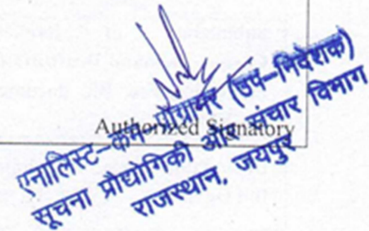 Authorized Signatory
एनालिस्ट-कम-प्रोग्रामर (उप-निदेशक)
सूचना प्रौद्योगिकी और संचार विभाग
राजस्थान, जयपुर